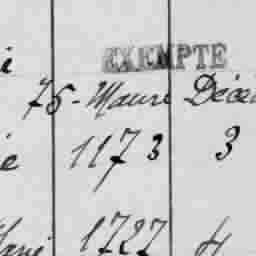 i EXEMPTE
75 - Maure Déce
e 1173 3
Marie 1727 4